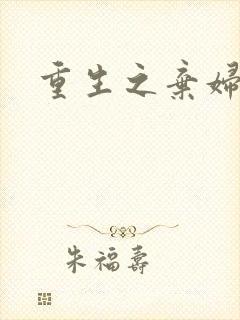 重生之棄婦
朱福壽